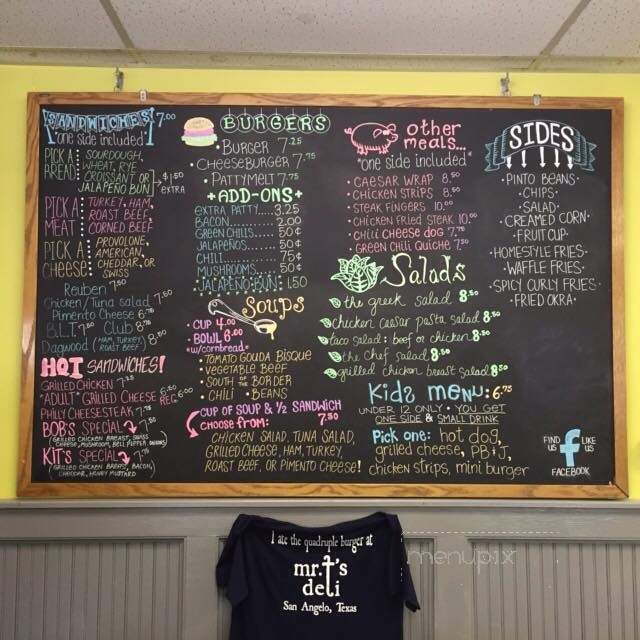 SANDWICHES 7.00
*one side included*
PICK A BREAD: SOURDOUGH, WHEAT, RYE, CROISSANT OR JALAPEÑO BUN } $1.50 EXTRA
PICK A MEAT: TURKEY, HAM, ROAST BEEF, CORNED BEEF
PICK A CHEESE: PROVOLONE, AMERICAN, CHEDDAR, OR SWISS
Reuben 7.50
Chicken/Tuna salad 7.50
Pimento Cheese 6.75
B.L.T 7.50 Club 8.75
Dagwood (HAM, TURKEY, ROAST BEEF) 8.50
HOT SANDWICHES!
GRILLED CHICKEN 7.75
*ADULT* GRILLED CHEESE 6.50 REG 6.00
PHILLY CHEESESTEAK 7.75
BOB'S SPECIAL 7.50
(GRILLED CHICKEN BREAST, SWISS CHEESE, MUSHROOM, BELL PEPPER, ONIONS)
KIT'S SPECIAL 7.75
(GRILLED CHICKEN BREAST, BACON, CHEDDAR, HONEY MUSTARD)
BURGERS
• BURGER 7.25
• CHEESEBURGER 7.75
• PATTY MELT 7.75
+ADD-ONS+
EXTRA PATTY.... 3.25
BACON........... 2.00
GREEN CHILIS...... 50¢
JALAPEÑOS....... 50¢
CHILI........... 75¢
MUSHROOMS..... 50¢
•JALAPEÑO•BUN: 1.50
Soups
• CUP 4.00
• BOWL 6.00
*w/cornbread*
• TOMATO GOUDA BISQUE
• VEGETABLE BEEF
• SOUTH OF THE BORDER
• CHILI • BEANS
CUP OF SOUP & ½ SANDWICH
CHOOSE FROM: 7.50
CHICKEN SALAD, TUNA SALAD,
GRILLED CHEESE, HAM, TURKEY,
ROAST BEEF, OR PIMENTO CHEESE!
other meals...
*one side included*
• CAESAR WRAP 8.50
• CHICKEN STRIPS 8.50
• STEAK FINGERS 10.00
• CHICKEN FRIED STEAK 10.00
• CHILI CHEESE DOG 7.75
• GREEN CHILI QUICHE 7.50
Salads
the greek salad 8.50
chicken caesar pasta salad 8.50
taco salad: beef or chicken 8.50
the chef salad 8.50
grilled chicken breast salad 8.50
Kids menu: 6.75
UNDER 12 ONLY • YOU GET
ONE SIDE & SMALL DRINK
Pick one: hot dog,
grilled cheese, PB+J,
chicken strips, mini burger
SIDES
•PINTO BEANS•
•CHIPS•
•SALAD•
•CREAMED CORN•
•FRUIT CUP•
•HOMESTYLE FRIES•
•WAFFLE FRIES•
•SPICY CURLY FRIES•
•FRIED OKRA•
FIND US f LIKE US
FACEBOOK
I ate the quadruple burger at
mr. t's
deli
San Angelo, Texas
menupix